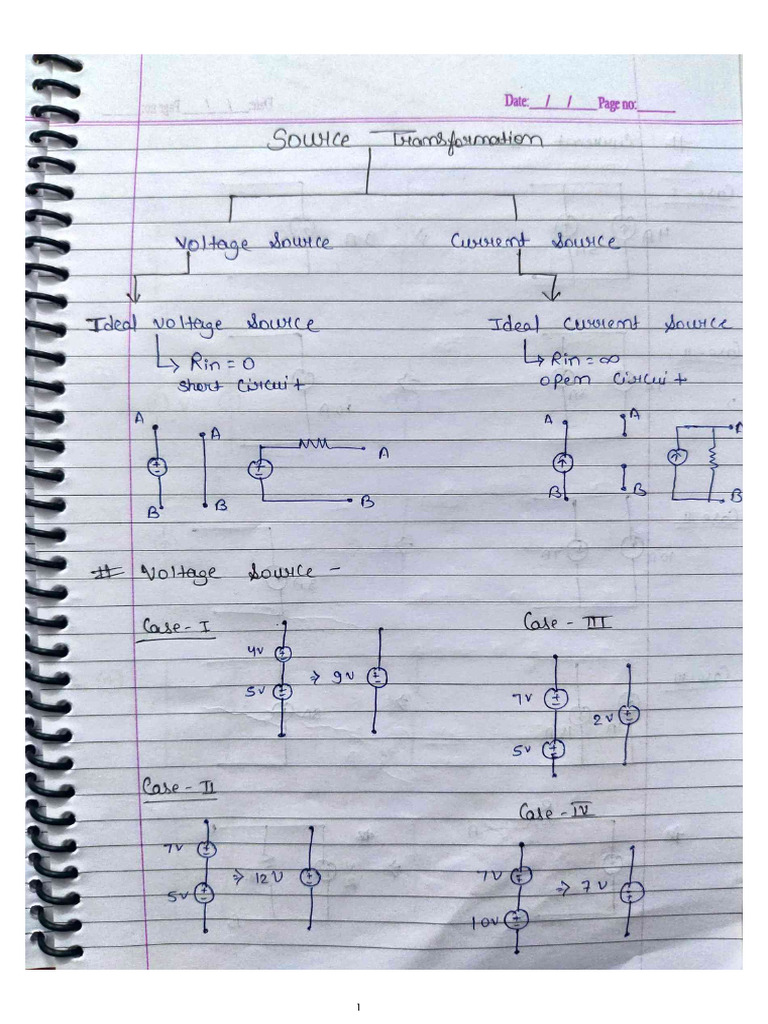 Date: / / Page no:
Source Transformation
Voltage Source
Current Source
Ideal Voltage Source
Ideal Current Source
Rin = 0
short circuit
Rin = ∞
open circuit
A
A
A
B
B
B
A
A
A
B
B
B
# Voltage Source -
Case - I
4v
5v
⇒ 9v
Case - III
7v
5v
2v
Case - II
7v
5v
⇒ 12v
Case - IV
7v
10v
⇒ 7v
1